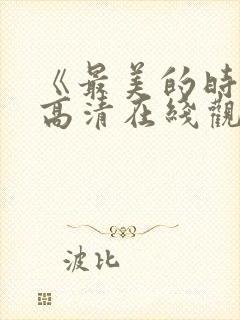 《最美的時
高清在綫觀
波比